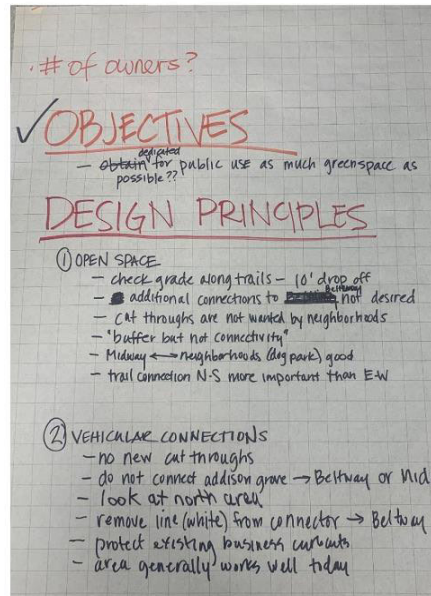 · # of owners?
✓ OBJECTIVES
dedicated
– obtain for public use as much greenspace as
possible??
DESIGN PRINCIPLES
① OPEN SPACE
– check grade along trails – 10' drop off
– additional connections to Beltway not desired
– cut throughs are not wanted by neighborhoods
– "buffer but not connectivity"
– Midway ⟷ neighborhoods (dog park) good
– trail connection N-S more important than E-W
② VEHICULAR CONNECTIONS
– no new cut throughs
– do not connect addison grove → Beltway or Mid
– look at north area
– remove line (white) from connector → Beltway
– protect existing business curbcuts
– area generally works well today